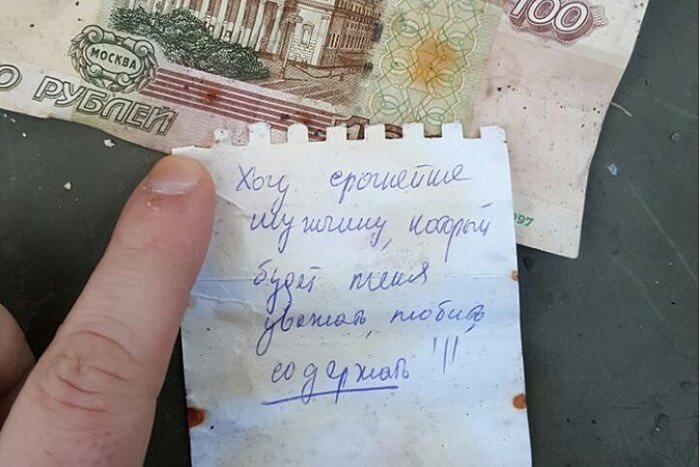 100
МОСКВА
О РУБЛЕЙ
997
Хочу срочнейше
мужчину, который
будет меня
уважать, любить,
содержать !!!